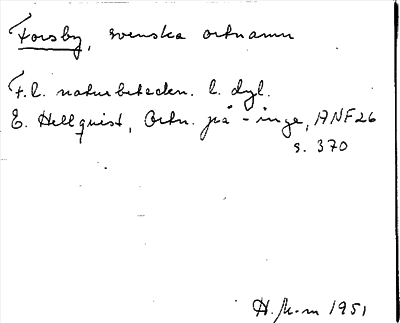 Forsby, svenska ortnamn
F.l. naturbeteckn. l. dyl.
E. Hellquist, Ortn. på -inge, ANF 26
s. 370
H. M-m 1951